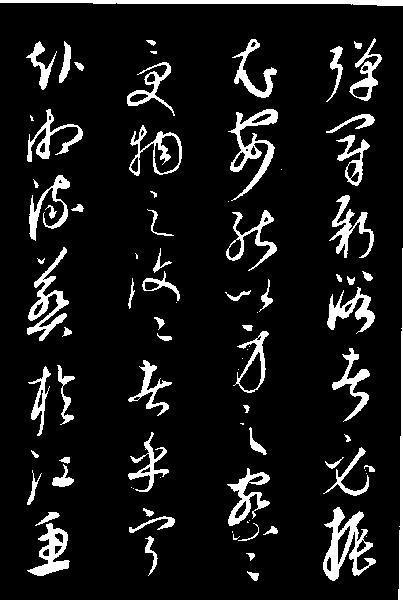 彈冠新浴者必振
衣安能以身之察々
受物之汶々者乎寧
赴湘流葬於江魚